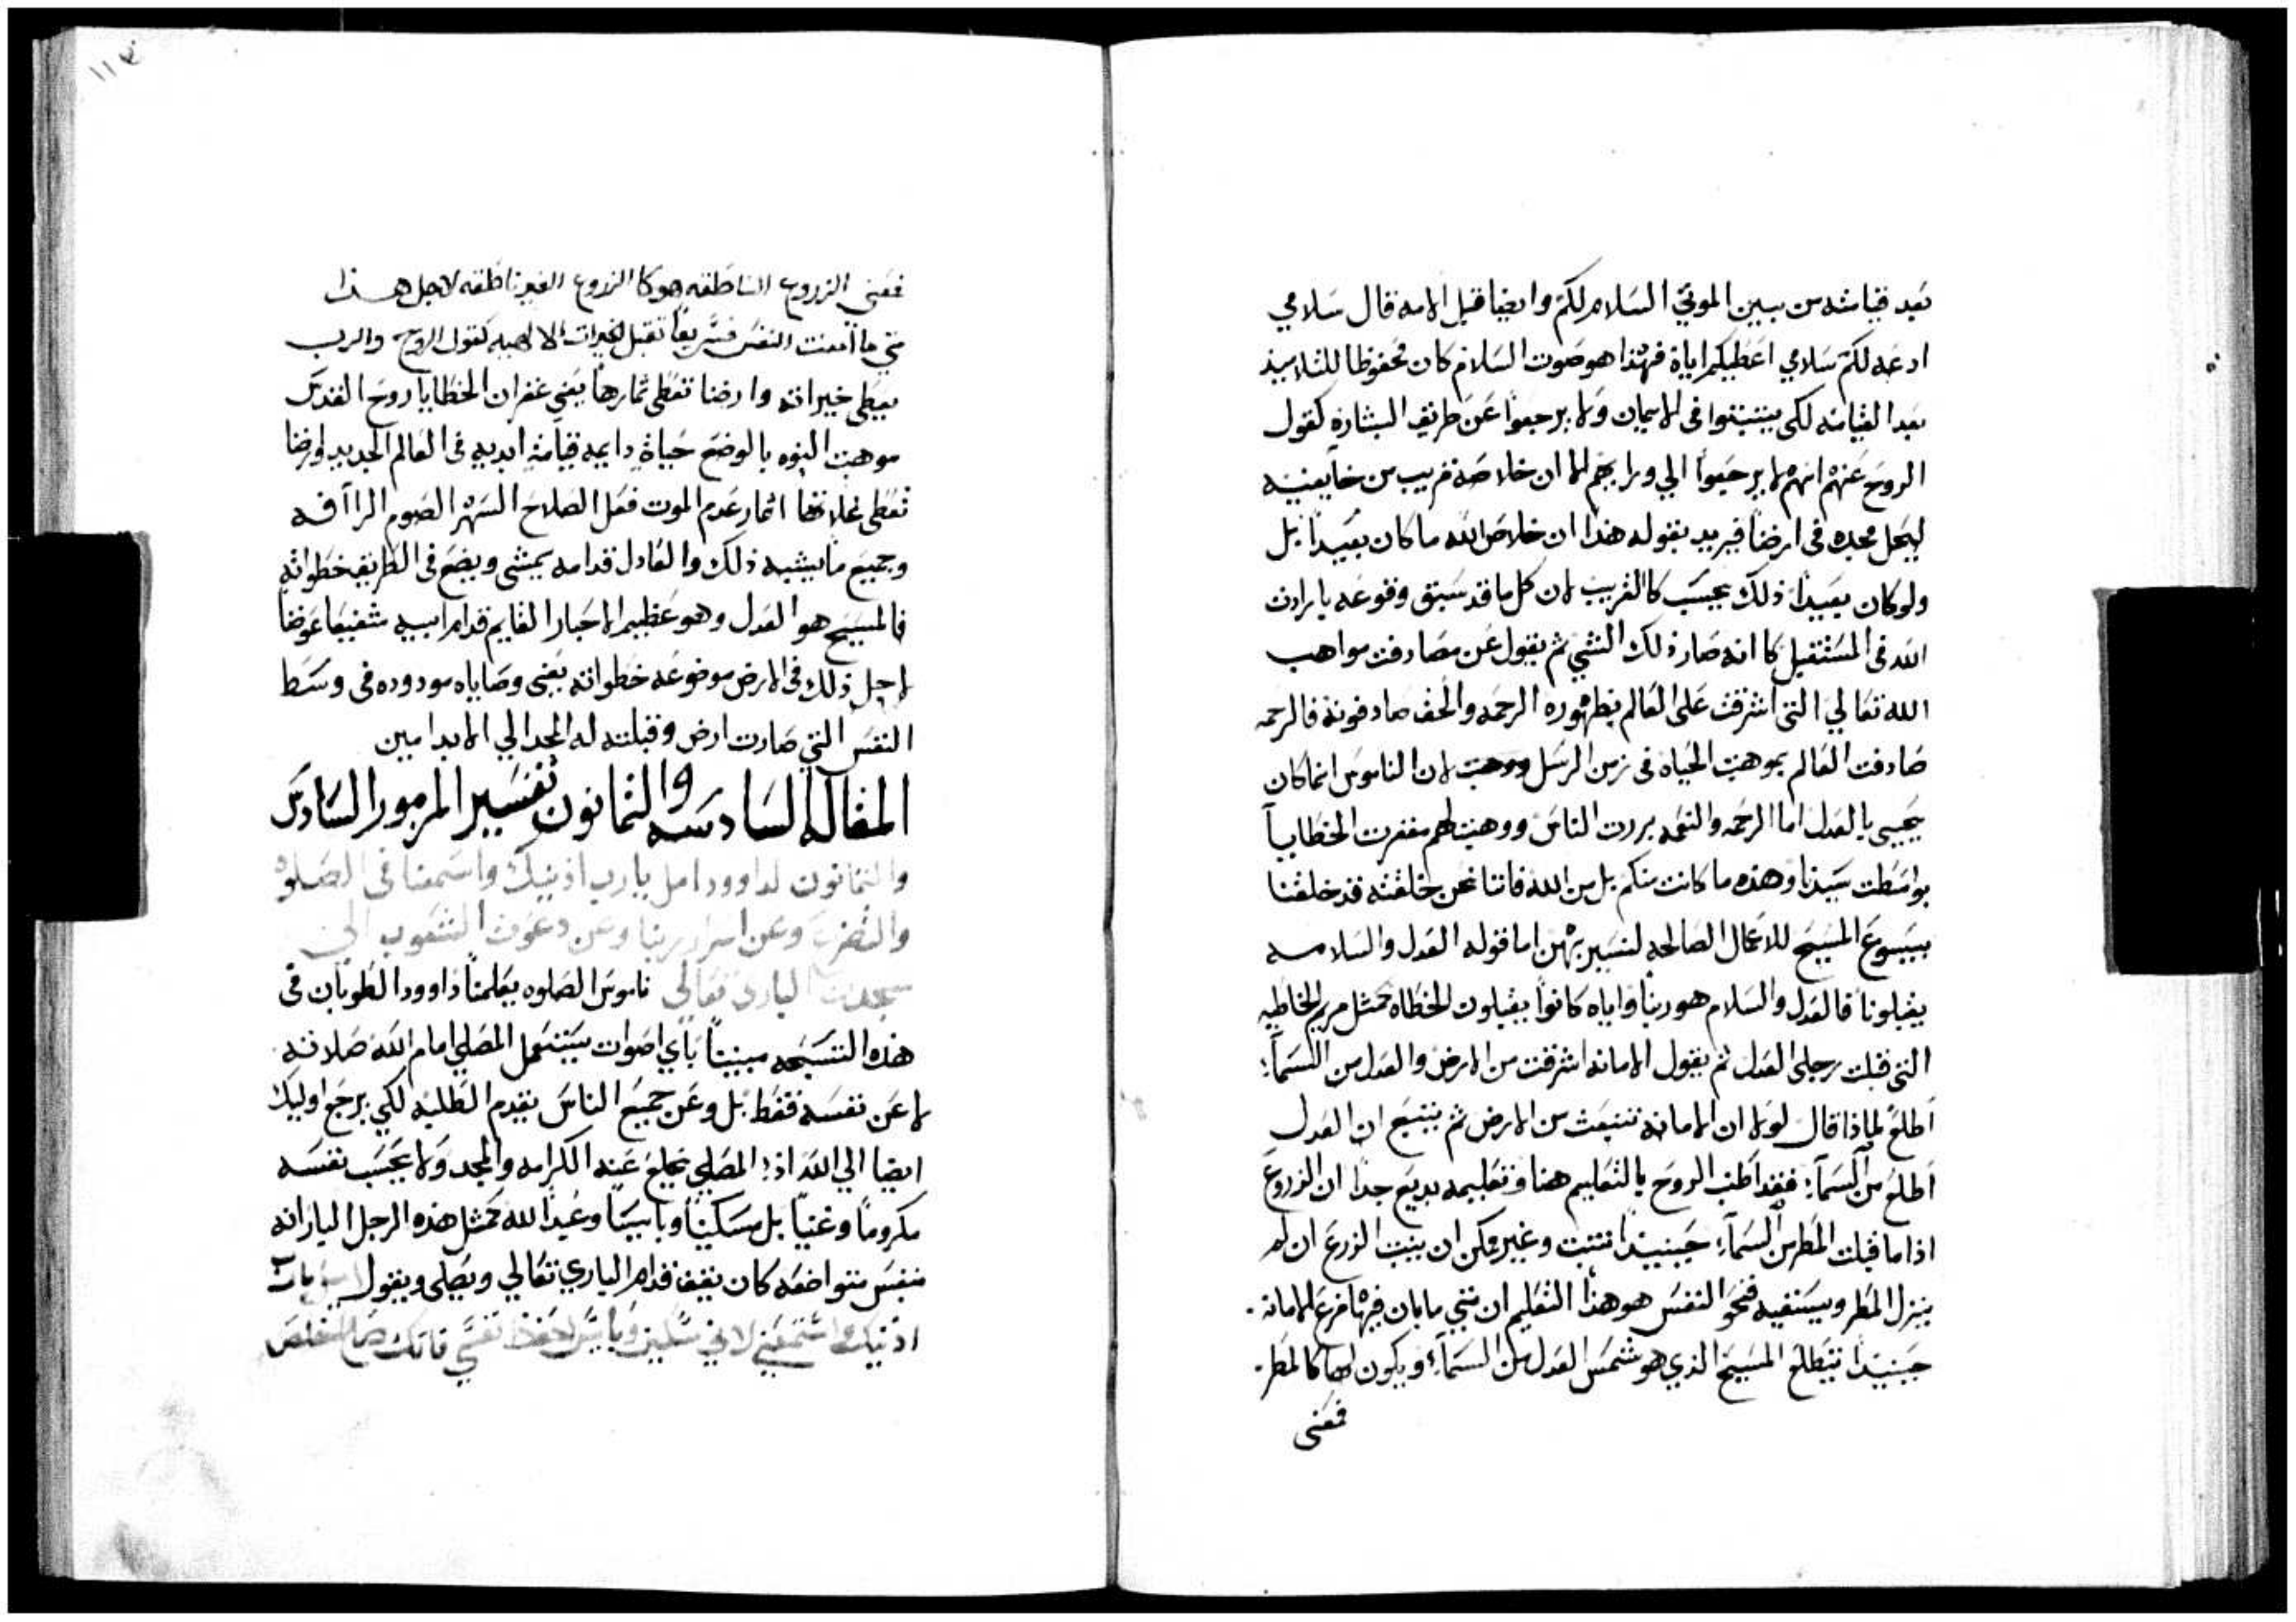 بعد قيامته من بين الموتي السلام لكم وايضا قبل الامه قال سلامي
ادعه لكم سلامي اعطيكم اياة فهذا هو صوت السلام كان محفوظا للتلاميذ
بعد القيامه لكي يتبتوا في الايمان ولا يرجعوا عن طريق البشاره كقول
الروح عنهم انهم لا يرجعوا الي وراهم الا ان خلاصه قريب من خايفيه
ليحل مجده في ارضنا فيريد بقوله هذا ان خلاص الله ما كان بعيداً بل
ولو كان بعيداً ذلك يحسب كالقريب لان كل ما قد سبق وقوعه بارادت
الله في المستقبل كانه صار ذلك الشي ثم يقول عن مصادفت مواهب
الله تعالي التي اشرقت على العالم بظهوره الرحمه والحق صادفونه فالرحمه
صادفت العالم بموهبت الحياه في زمن الرسل ووهبت لان الناموس انما كان
يحيى بالعدل اما الرحمه والنعمه بررت الناس ووهبت لهم مغفرت الخطايا
بواسطت سيدنا وهذه ما كانت منكم بل من الله فاننا نحن خلقته قد خلقنا
بيسوع المسيح للاعمال الصالحه لنسير بهن اما قوله العدل والسلامه
يقبلونا فالعدل والسلام هو ربنا واياه كانوا يقبلون الخطاه كمثل مريم الخاطيه
التي قبلت رجلى العدل ثم يقول الامانه اشرقت من الارض والعدل من السمآء
اطلع لماذا قال اولا ان الامانه تنبعت من الارض ثم يتبع ان العدل
اطلع من السمآء فقد اطنب الروح بالتعليم هنا وتعليمه بديع جدا ان الزروع
اذا ما قبلت المطر من السمآء حينيذا تنبت وغير ممكن ان ينبت الزرع ان لم
ينزل المطر ويسقيه فنحو النفس هو هذا التعليم ان متي ما بان فيها فرع الامانه
حينيذا يتطلع المسيح الذي هو شمس العدل من السمآء ويكون لها كالمطر
فمعنى
١١٣
فمعنى الزروع الناطقه هو كالزروع الغير ناطقه لاجل هذا
متي ما امنت النفس سريعا تقبل الخيرات الالاهيه كقول الروح والرب
يعطي خيراته وارضنا تعطي ثمارها يعني غفران الخطايا روح القدس
موهبت البنوه بالوضع حياة دايمه قيامة ابديه في العالم الجديد وارضنا
تعطي غلاتها اثمار عدم الموت فعل الصلاح السهر الصوم الراآفه
وجميع ما يشبه ذلك والعادل قدامه يمشي ويضع في الطريق خطواته
فالمسيح هو العدل وهو عظيم الاحبار القايم قدام ابيه شفيعا عوضنا
لاجل ذلك في الارض موضوعه خطواته يعني وصاياه مودوده في وسط
النفس التي صارت ارض وقبلته له المجد الي الابد امين
المقاله السادسه والثمانون تفسير المزمور السادس
والثمانون لداوود امل يا رب اذنيك واسمعنا في الصلوه
والتضرع وعن اسرار ربنا وعن دعوت الشعوب الي
سجدت الباري تعالي ناموس الصلوه يعلمنا داوود الطوبان في
هذه التسبحه مبيناً باي اصوات يستعمل المصلي امام الله صلاته
لا عن نفسه فقط بل وعن جميع الناس يقدم الطلبه لكي يرجع اوليك
ايضا الي الله اذ المصلي يخلع عنه الكرامه والمجد ولا يحسب نفسه
مكروماً وغنياً بل مسكيناً وبايساً وعبداً لله كمثل هذه الرجل البارانه
بنفس متواضعه كان يقف قدام الباري تعالي ويصلي ويقول امل يا رب
اذنيك واستمعني لاني مسكين وبايس احفظ نفسي فانك صالح خلص